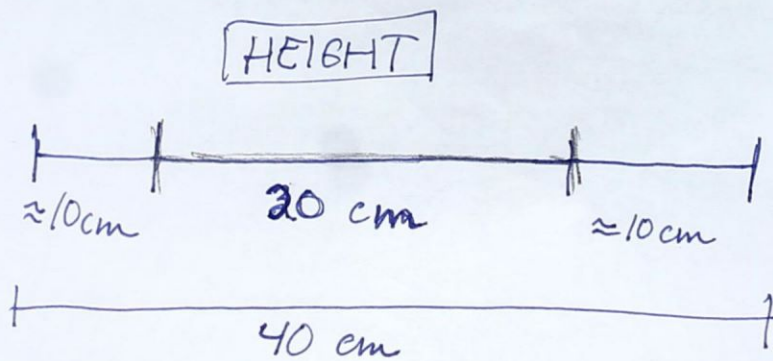 HEIGHT
≈10cm 20 cm ≈10cm
40 cm